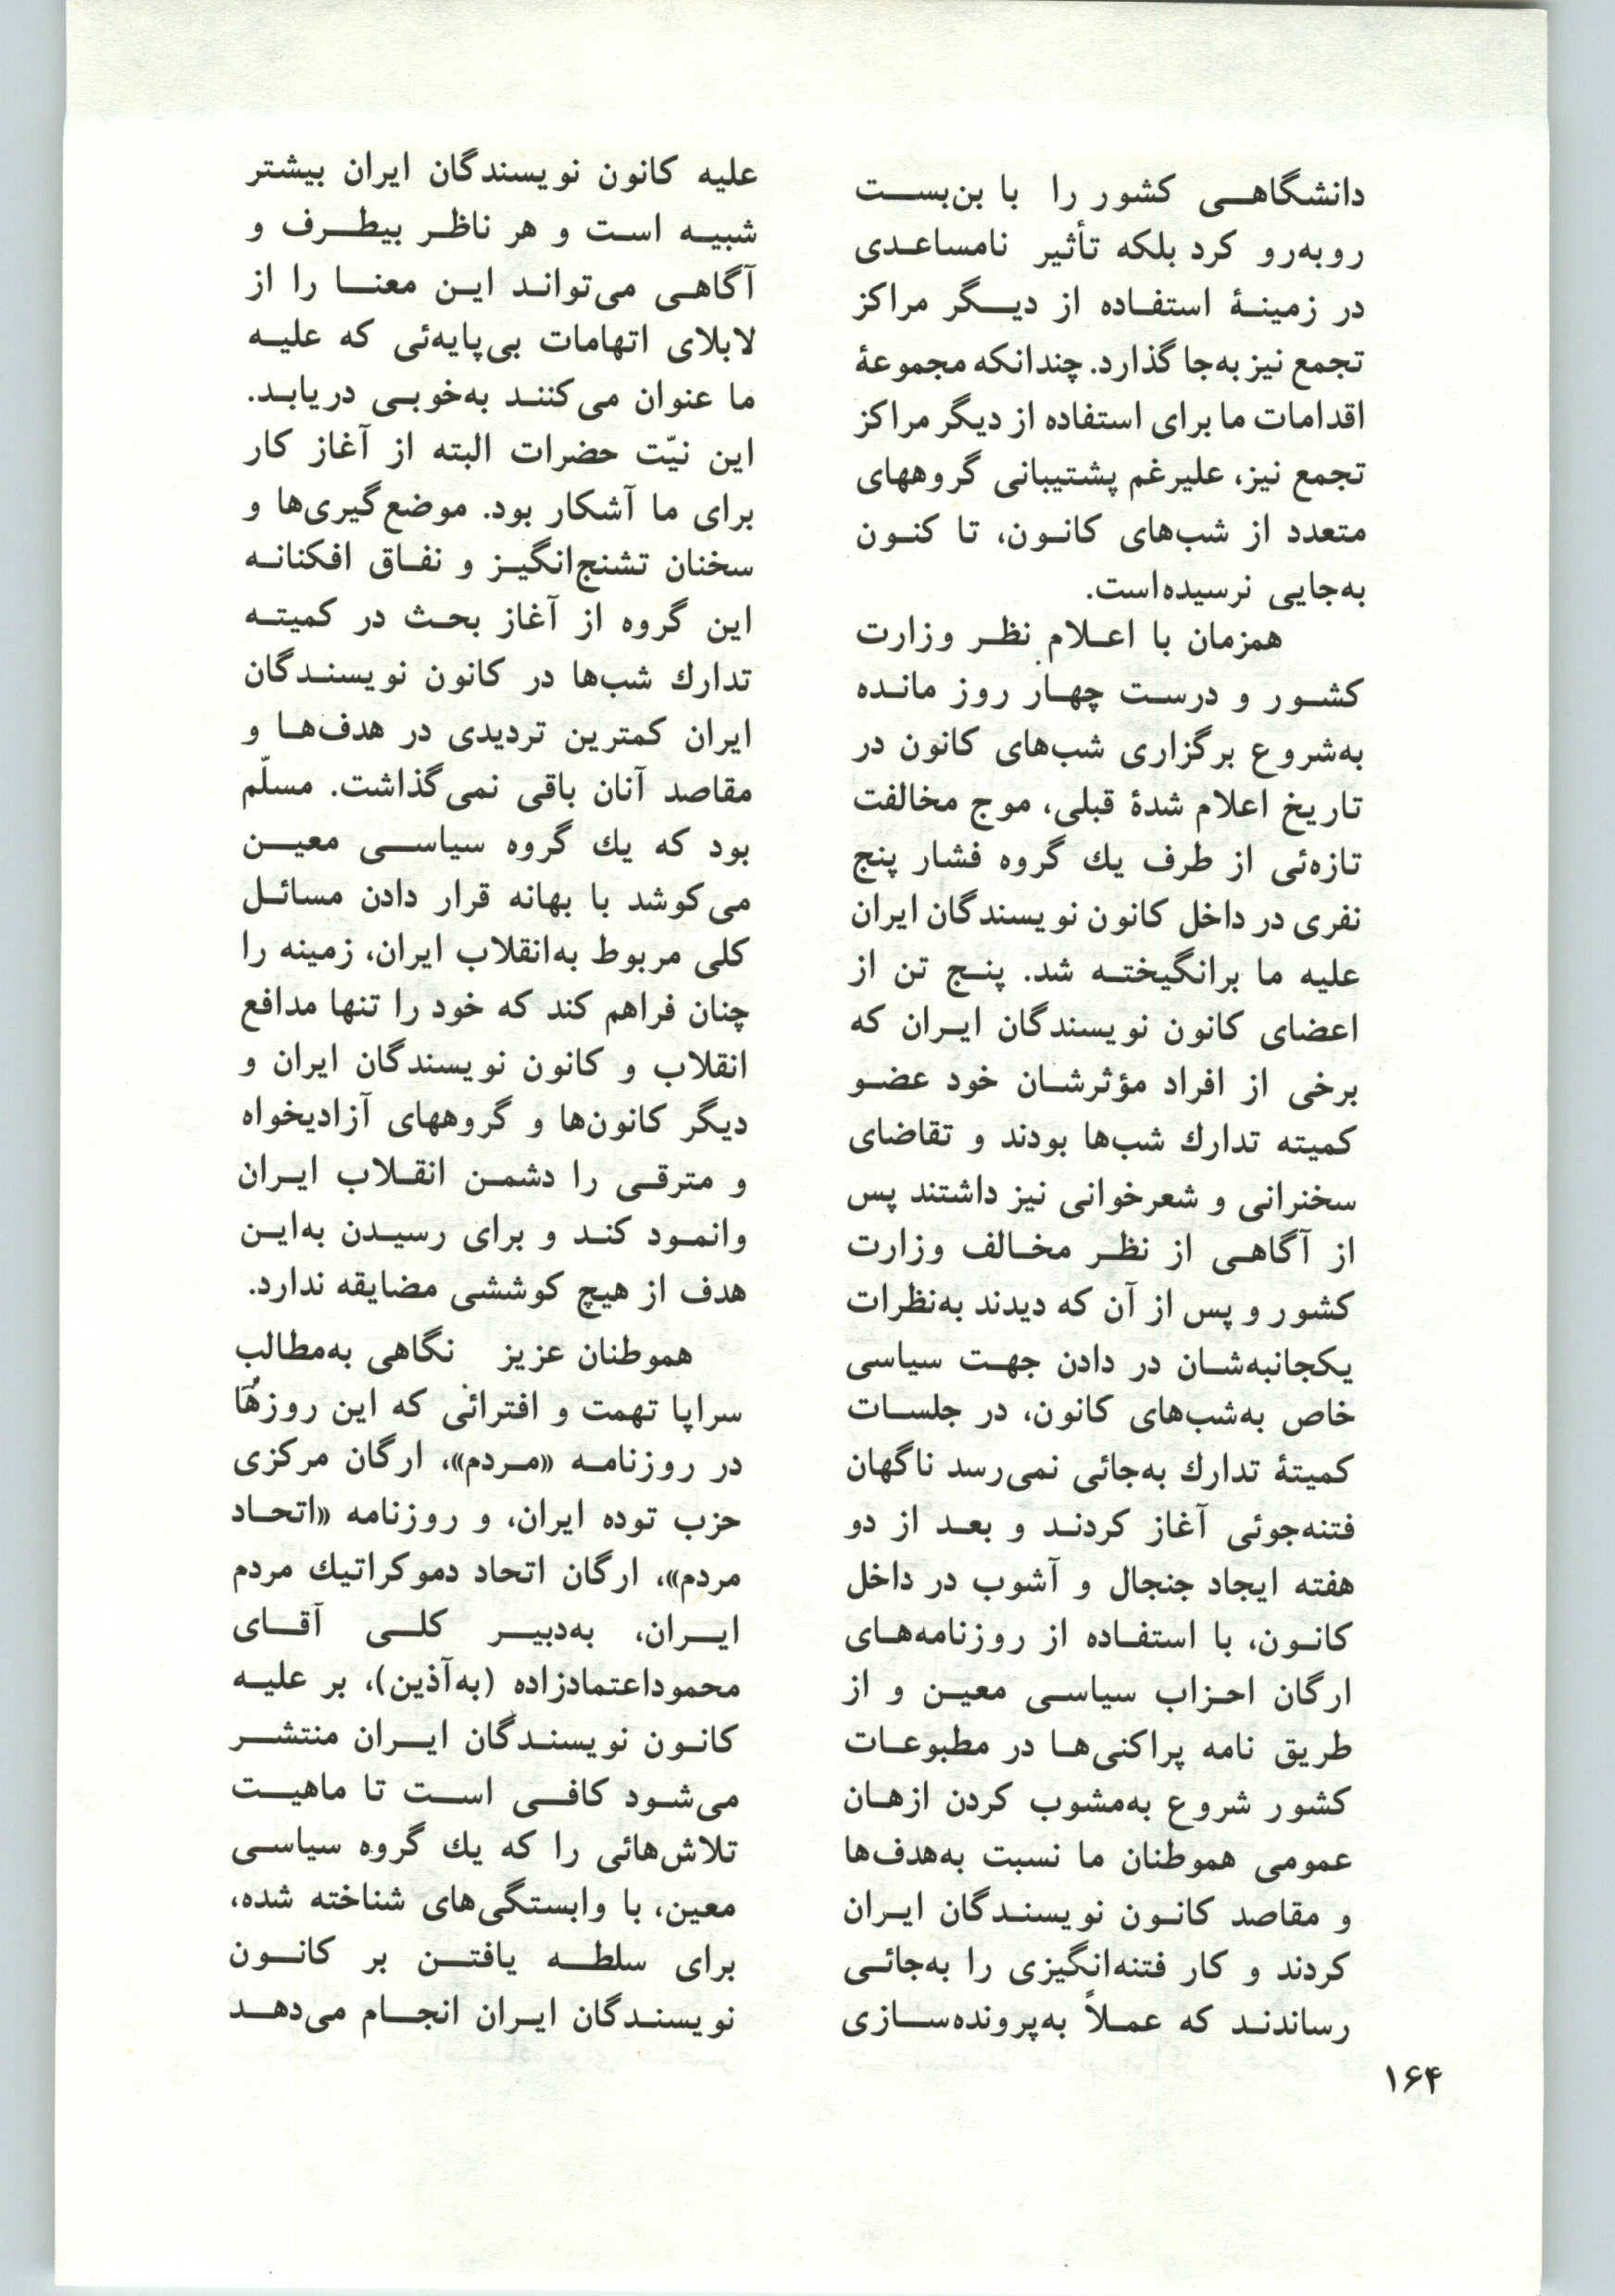 دانشگاهی کشور را با بن‌بست
روبه‌رو کرد بلکه تأثیر نامساعدی
در زمینهٔ استفاده از دیگر مراکز
تجمع نیز به‌جا گذارد. چندانکه مجموعهٔ
اقدامات ما برای استفاده از دیگر مراکز
تجمع نیز، علیرغم پشتیبانی گروههای
متعدد از شب‌های کانون، تا کنون
به‌جایی نرسیده‌است.
همزمان با اعلام نظر وزارت
کشور و درست چهار روز مانده
به‌شروع برگزاری شب‌های کانون در
تاریخ اعلام شدهٔ قبلی، موج مخالفت
تازه‌ئی از طرف یك گروه فشار پنج
نفری در داخل کانون نویسندگان ایران
علیه ما برانگیخته شد. پنج تن از
اعضای کانون نویسندگان ایران که
برخی از افراد مؤثرشان خود عضو
کمیته تدارك شب‌ها بودند و تقاضای
سخنرانی و شعرخوانی نیز داشتند پس
از آگاهی از نظر مخالف وزارت
کشور و پس از آن که دیدند به‌نظرات
یکجانبه‌شان در دادن جهت سیاسی
خاص به‌شب‌های کانون، در جلسات
کمیتهٔ تدارك به‌جائی نمی‌رسد ناگهان
فتنه‌جوئی آغاز کردند و بعد از دو
هفته ایجاد جنجال و آشوب در داخل
کانون، با استفاده از روزنامه‌های
ارگان احزاب سیاسی معین و از
طریق نامه پراکنی‌ها در مطبوعات
کشور شروع به‌مشوب کردن ازهان
عمومی هموطنان ما نسبت به‌هدف‌ها
و مقاصد کانون نویسندگان ایران
کردند و کار فتنه‌انگیزی را به‌جائی
رساندند که عملاً به‌پرونده‌سازی
علیه کانون نویسندگان ایران بیشتر
شبیه است و هر ناظر بیطرف و
آگاهی می‌تواند این معنا را از
لابلای اتهامات بی‌پایه‌ئی که علیه
ما عنوان می‌کنند به‌خوبی دریابد.
این نیّت حضرات البته از آغاز کار
برای ما آشکار بود. موضع‌گیری‌ها و
سخنان تشنج‌انگیز و نفاق افکنانه
این گروه از آغاز بحث در کمیته
تدارك شب‌ها در کانون نویسندگان
ایران کمترین تردیدی در هدف‌ها و
مقاصد آنان باقی نمی‌گذاشت. مسلّم
بود که یك گروه سیاسی معین
می‌کوشد با بهانه قرار دادن مسائل
کلی مربوط به‌انقلاب ایران، زمینه را
چنان فراهم کند که خود را تنها مدافع
انقلاب و کانون نویسندگان ایران و
دیگر کانون‌ها و گروههای آزادیخواه
و مترقی را دشمن انقلاب ایران
وانمود کند و برای رسیدن به‌این
هدف از هیچ کوششی مضایقه ندارد.
هموطنان عزیز نگاهی به‌مطالب
سراپا تهمت و افترائی که این روزها
در روزنامه «مردم»، ارگان مرکزی
حزب توده ایران، و روزنامه «اتحاد
مردم»، ارگان اتحاد دموکراتیك مردم
ایران، به‌دبیر کلی آقای
محموداعتمادزاده (به‌آذین)، بر علیه
کانون نویسندگان ایران منتشر
می‌شود کافی است تا ماهیت
تلاش‌هائی را که یك گروه سیاسی
معین، با وابستگی‌های شناخته شده،
برای سلطه یافتن بر کانون
نویسندگان ایران انجام می‌دهد
۱۶۴